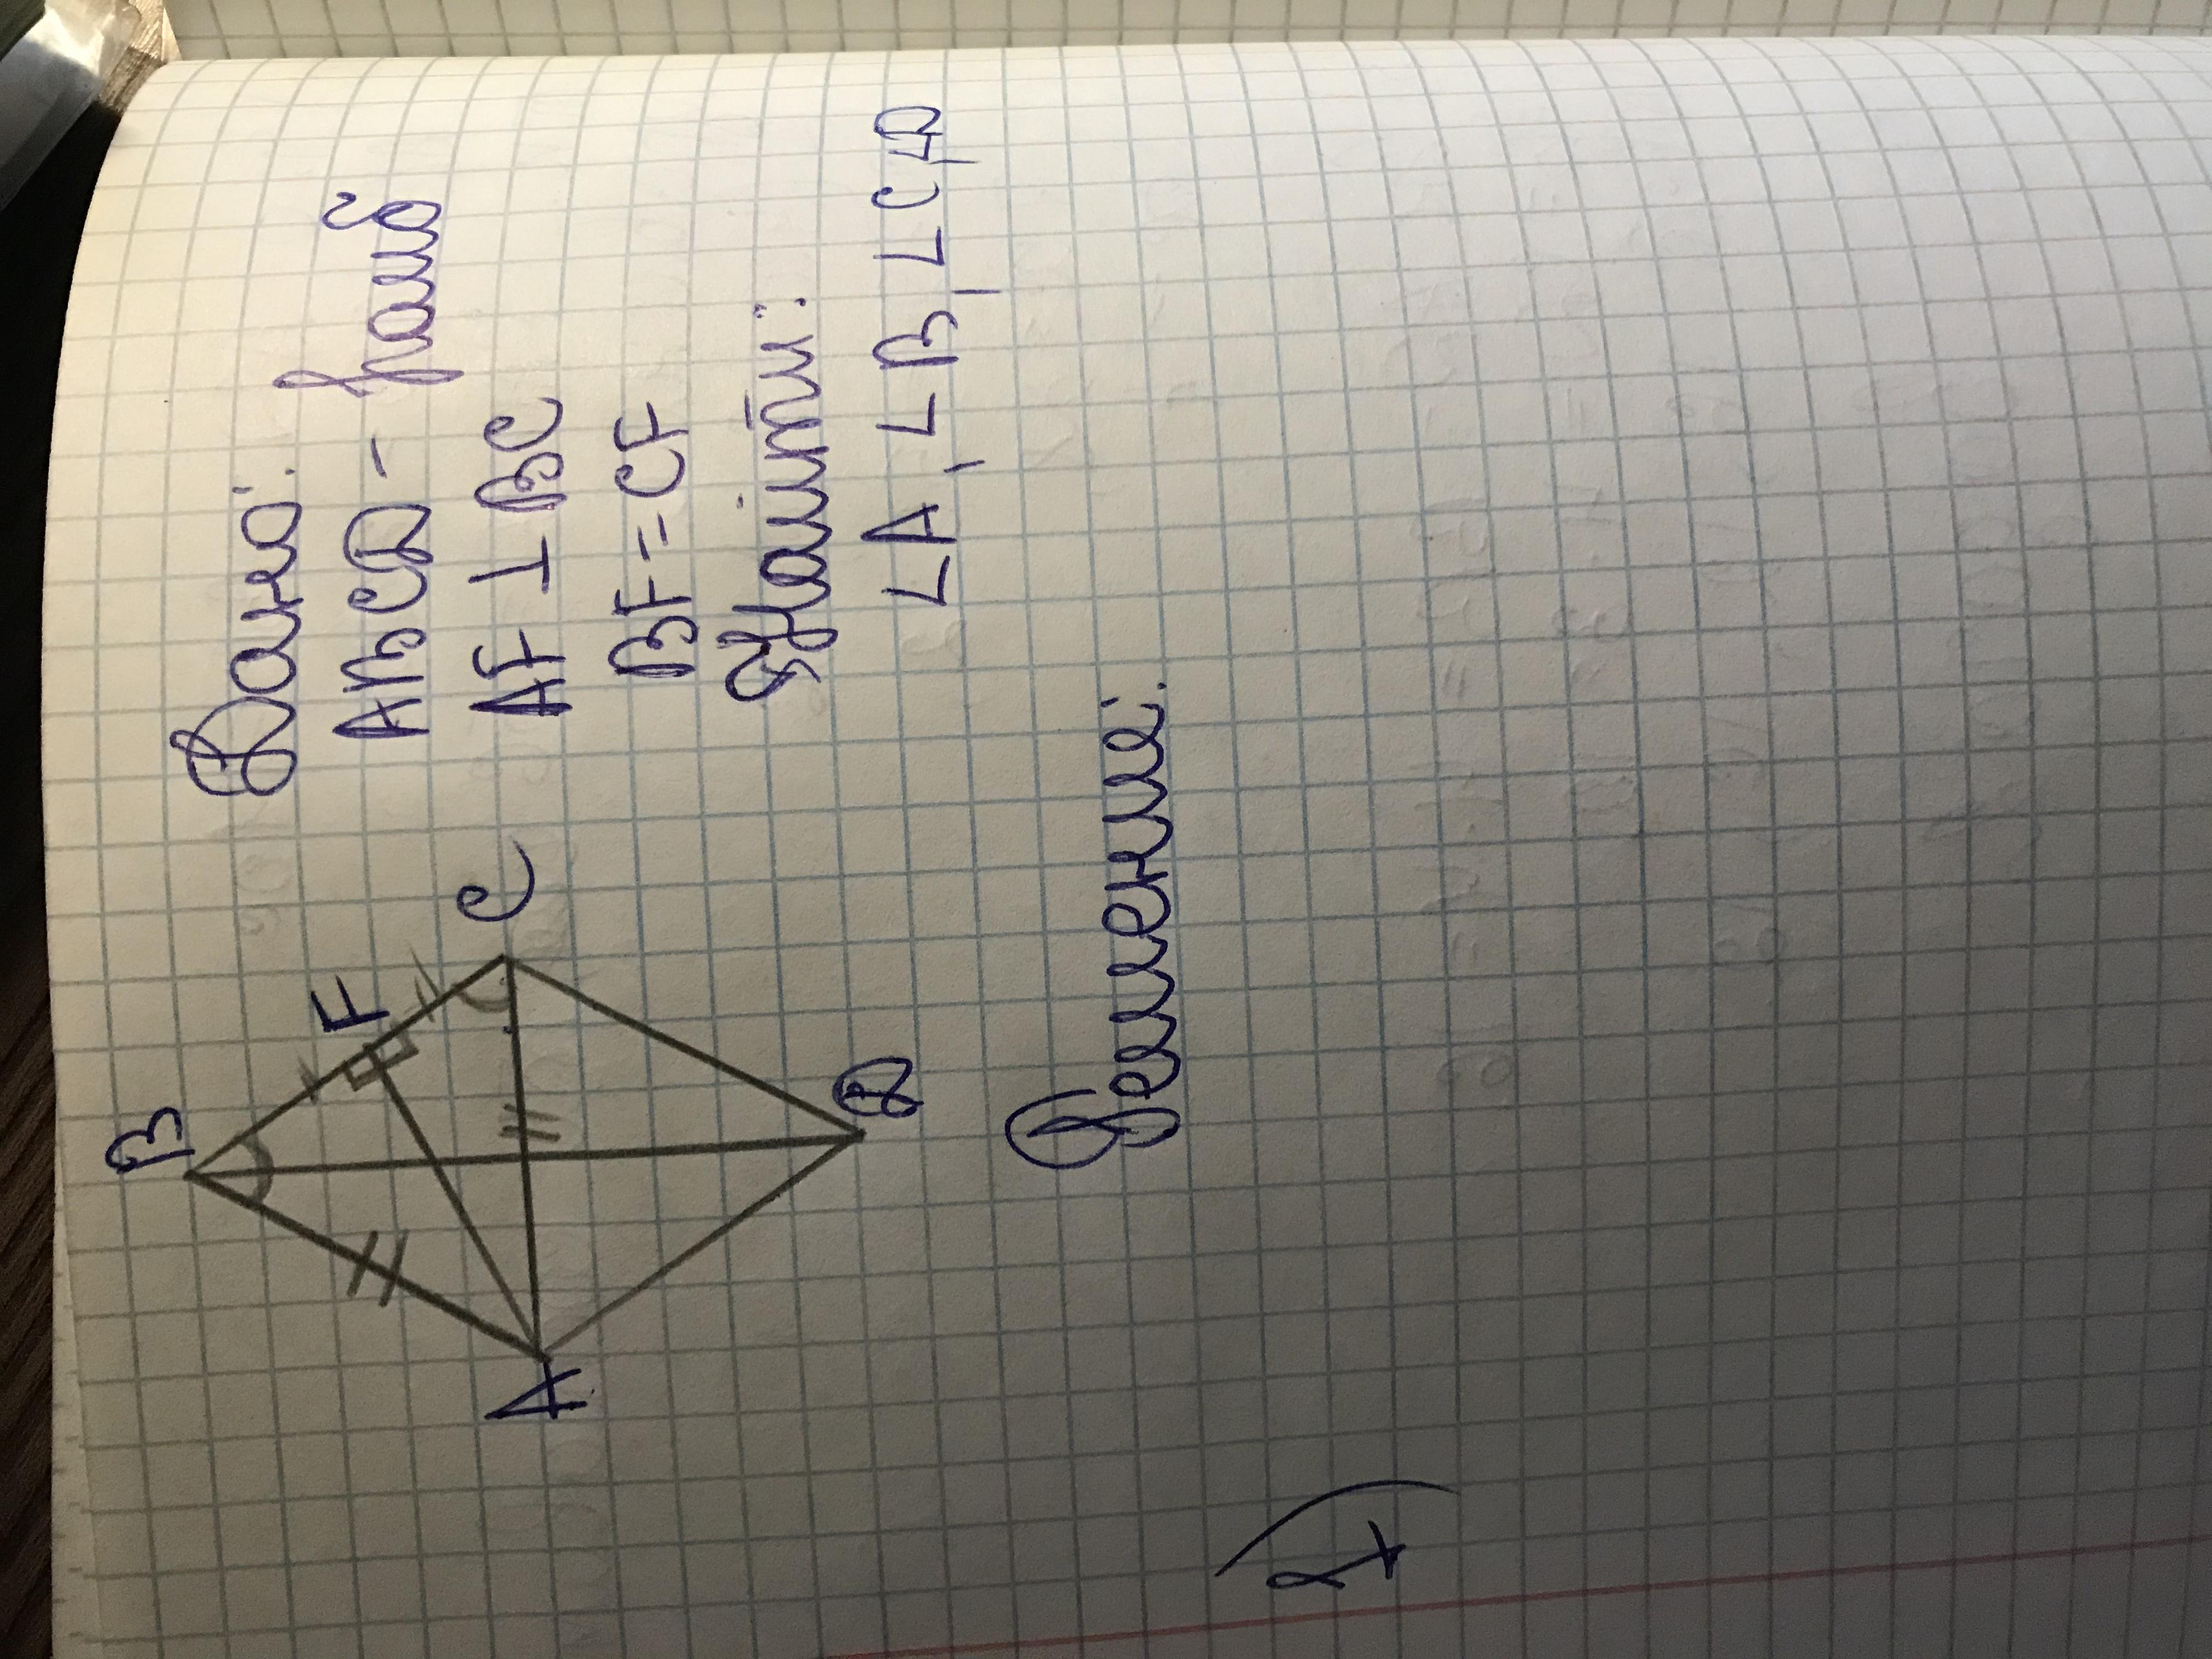 Дано:
ABCD - ромб
AF ⊥ BC
BF = CF
Найти:
∠A, ∠B, ∠C, ∠D
B
F
C
A
D
Решение: